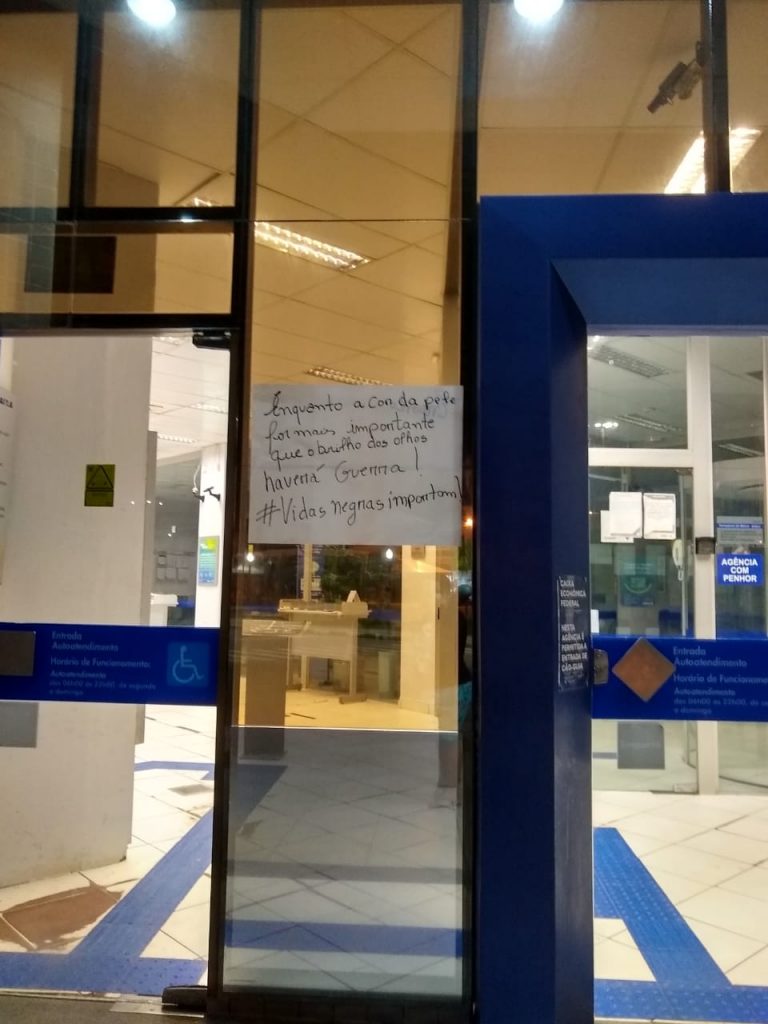 Enquanto a cor da pele
for mais importante
que o brilho dos olhos
haverá Guerra!
#Vidas negras importam!
AGÊNCIA
COM
PENHOR
CAIXA
ECONÔMICA
FEDERAL
NESTA
AGÊNCIA É
PERMITIDA A
ENTRADA DE
CÃO-GUIA
Entrada
Autoatendimento
Horário de Funcionamento:
Autoatendimento
das 06h00 às 22h00, de segunda
a domingo
Entrada
Autoatendimento
Horário de Funcioname
Autoatendimento
das 06h00 às 22h00, de se
a domingo